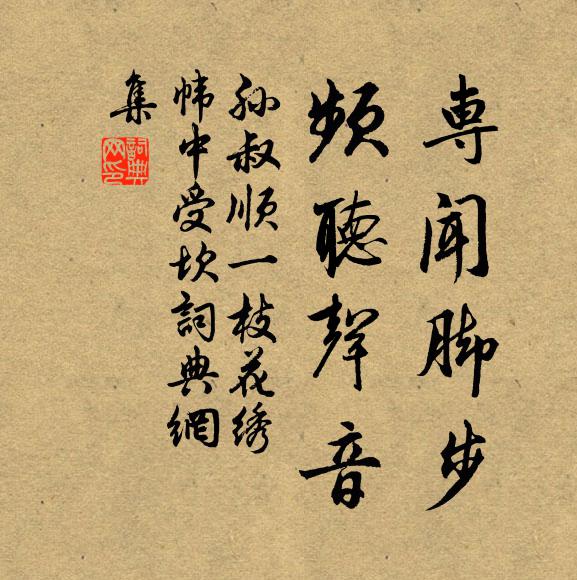 専聞脚步
頻聽聲音
孙叔顺一枝花绣
帏中受坎詞典網
集
詞典網印